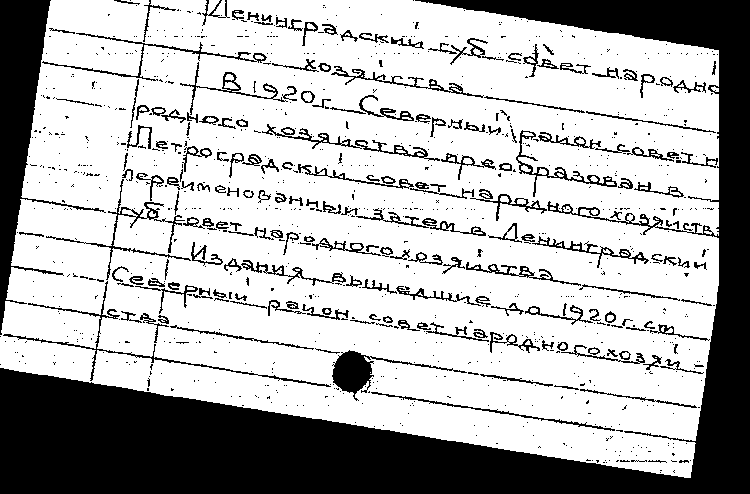 Ленинградский губ совет народно
го хозяйства
В 1920 г. Северный район. совет н
родного хозяйства преобразован в
Петроградский совет народного хозяйства
переименованный затем в Ленинградский
губ совет народного хозяйства
Издания, вышедшие до 1920 г. см
Северный район. совет народного хозяй-
ства